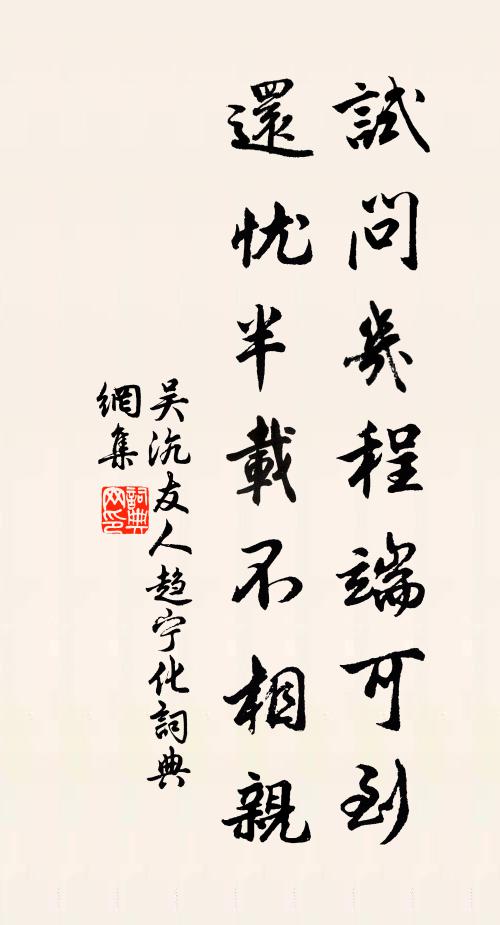 試問幾程端可到
還忧半載不相親
吴沆友人趙宁化詞典
網集
詞典
网印